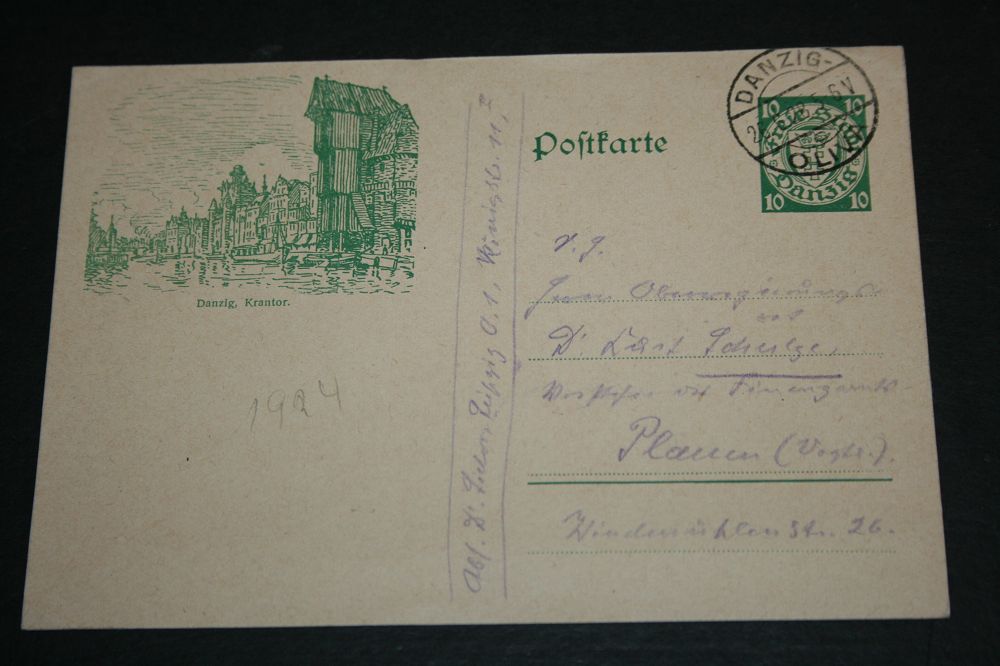 Danzig, Krantor.
1924
Abs. Dr. Leipzig O. 1, Königstr. 11, I
Postkarte
DANZIG-
OLIVA
6V
10 10
Freie Stadt
Danzig
10 10
Herrn Oberregierungs-
rat
Dr. Kurt Schulze,
Vorsteher des Finanzamts
Plauen (Vogtl.).
Windmühlenstr. 26.